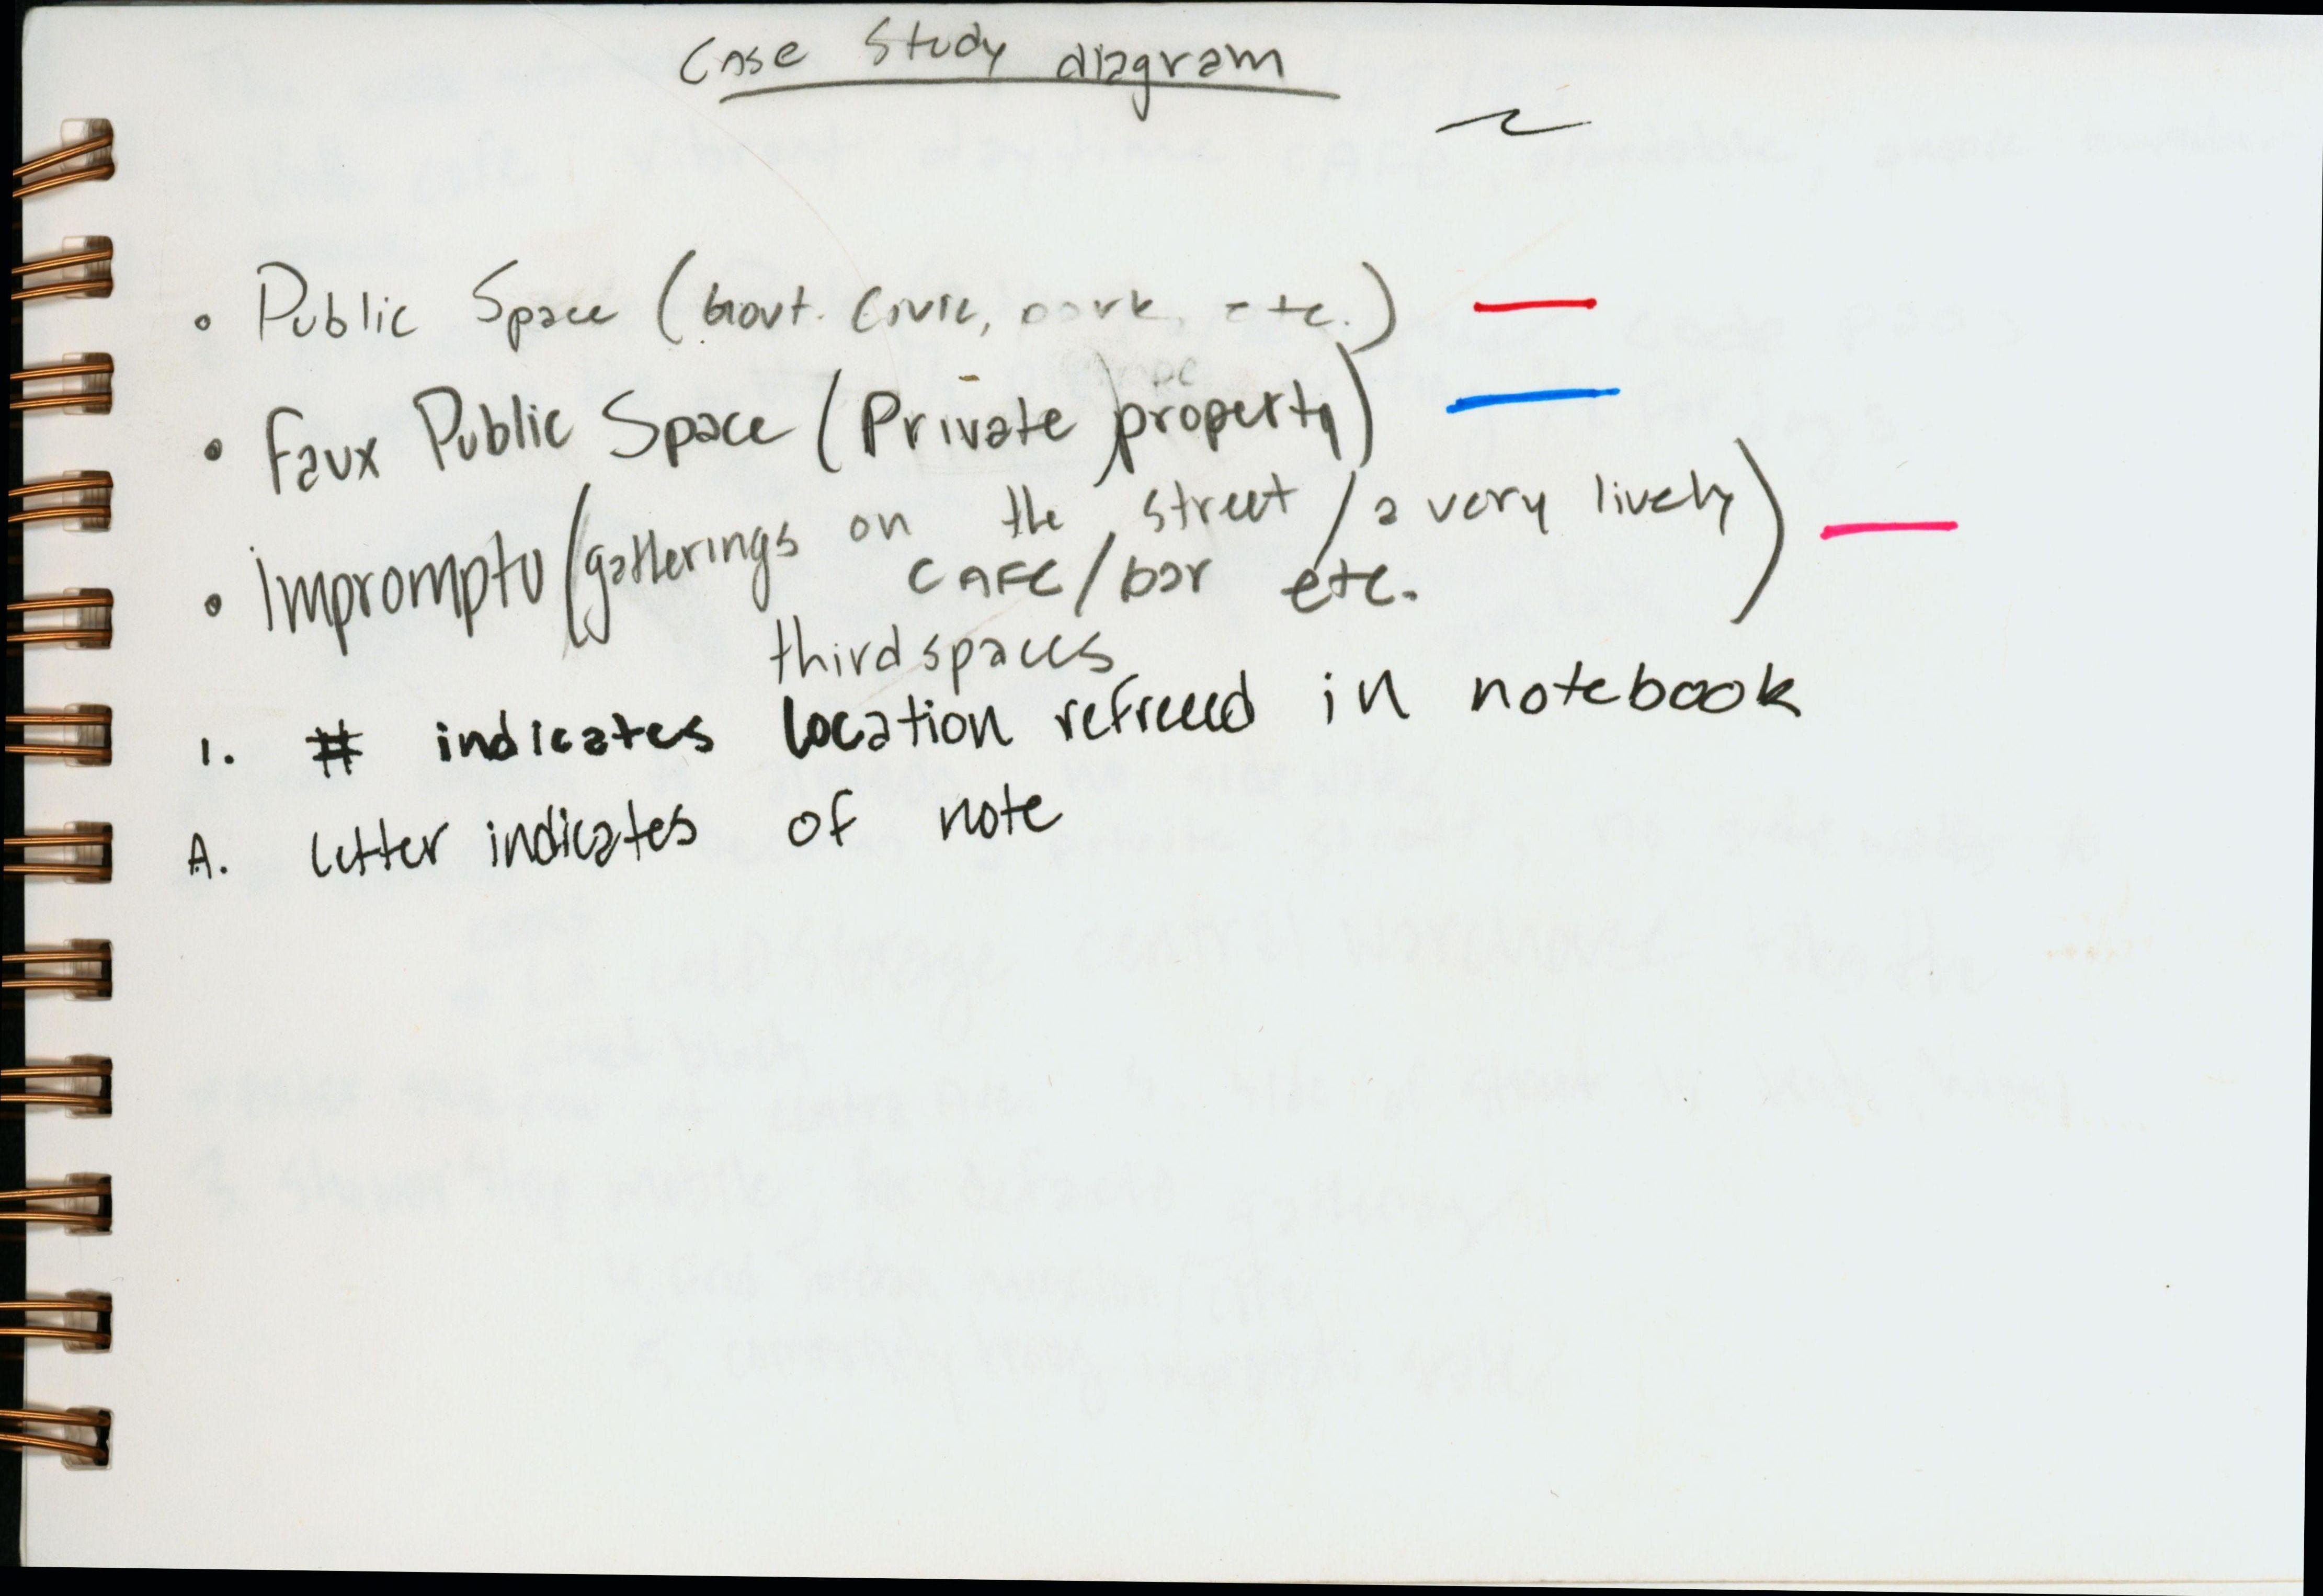 Case Study diagram
• Public Space (Govt. Civic, park, etc.)
• Faux Public Space (Private) property)
• Impromptu (gatherings on the street / a very lively)
CAFE/bar etc.
third spaces
1. # indicates location refreeed in notebook
A. letter indicates of note